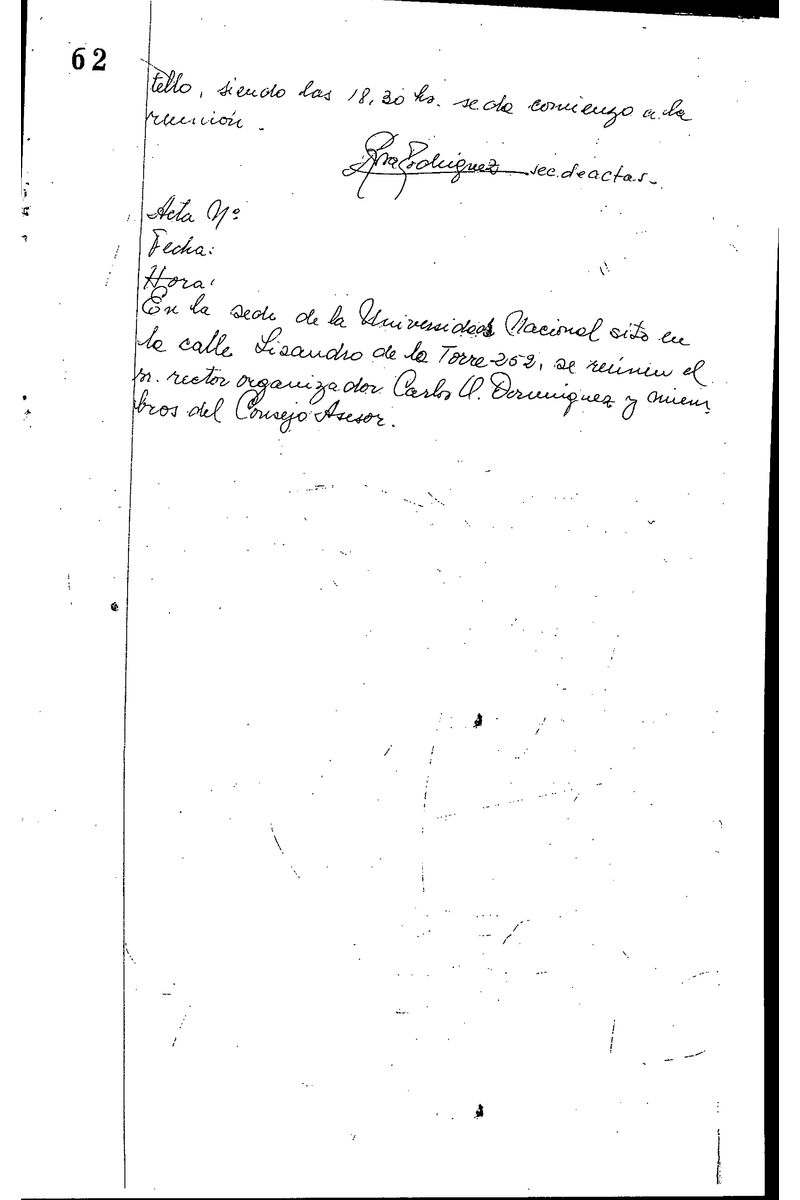 62
tello, siendo las 18,30 hs. se da comienzo a la
reunión.
Rosa Rodriguez sec. de actas.
Acta Nº
Fecha:
Hora:
En la sede de la Universidad Nacional sito en
la calle Lisandro de la Torre 252, se reúnen el
sr. rector organizador Carlos A. Dominguez y miem
bros del Consejo Asesor.